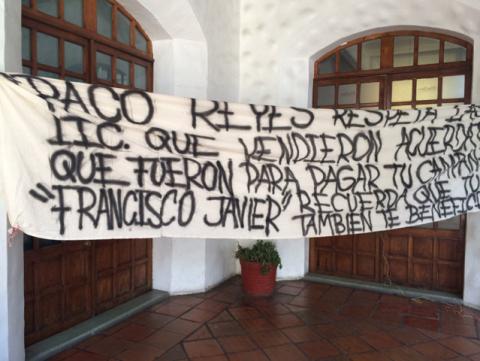 PACO REYES RESPETA LAS
LIC. QUE VENDIERON ACUERDATE
QUE FUERON PARA PAGAR TU CAMPAÑ
"FRANCISCO JAVIER" RECUERDA QUE TU
TAMBIEN TE BENEFICI